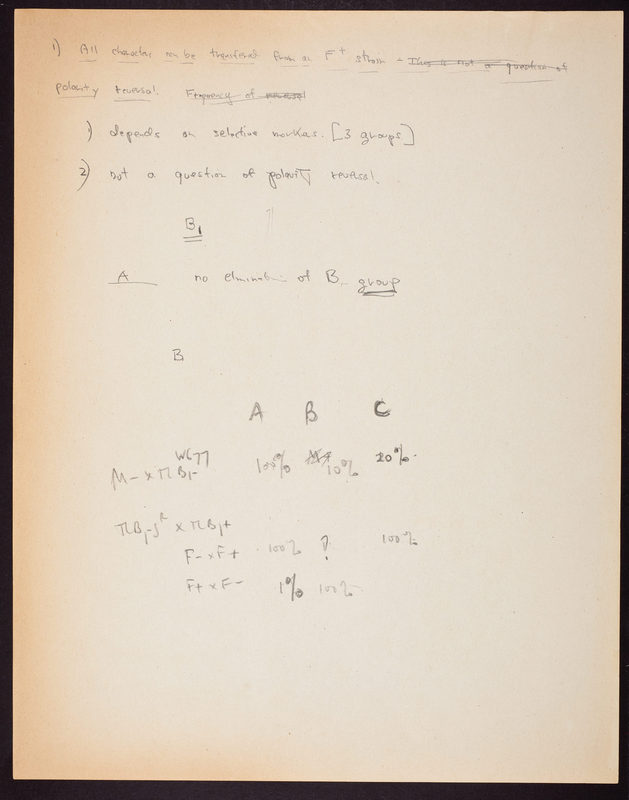 1) All characters can be transferred from an F+ strain - This is not a question of
polarity reversal. Frequency of reversal
1) depends on selective markers. [3 groups]
2) not a question of polarity reversal.
B1
A no elimination of B1- group
B
A B C
W677
M- x TL B1- 100% 10% 20%
TLB1-S^R x TLB1+
F- x F+ 100% ? 100%
F+ x F- 1% 100%